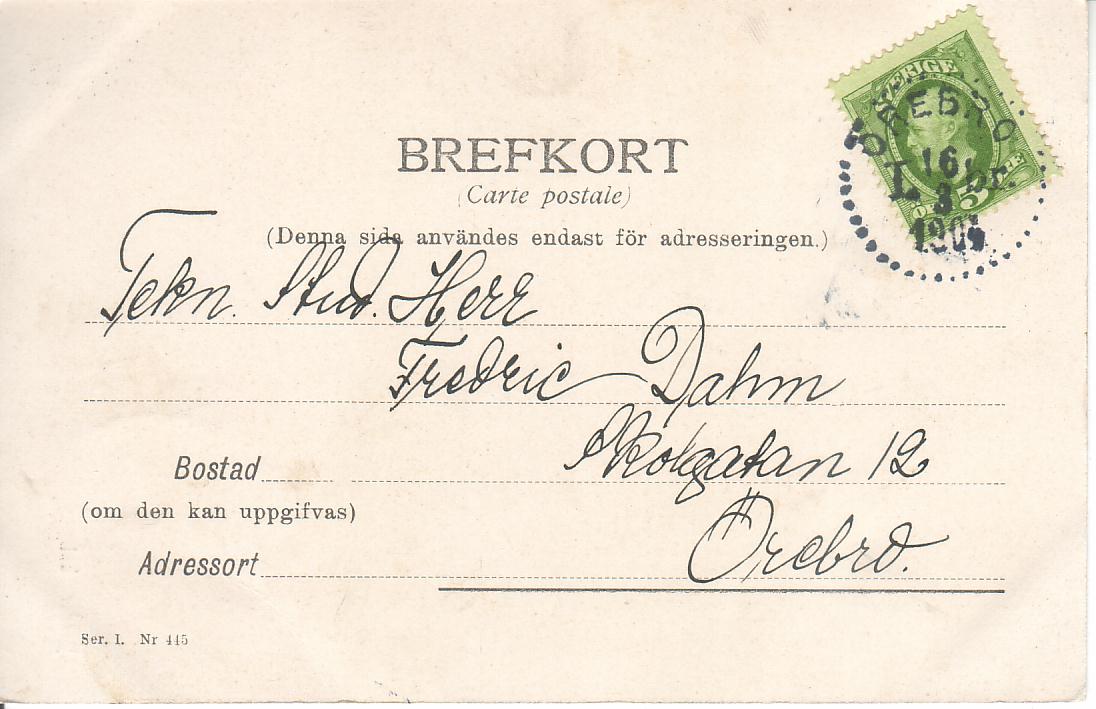 SVERIGE
5
ÖREBRO
16.
3
BREFKORT
(Carte postale)
(Denna sida användes endast för adresseringen.)
Tekn. Stud. Herr
Fredric Dahm
Skolgatan 12
Bostad
(om den kan uppgifvas)
Örebro.
Adressort
Ser. I. Nr 445